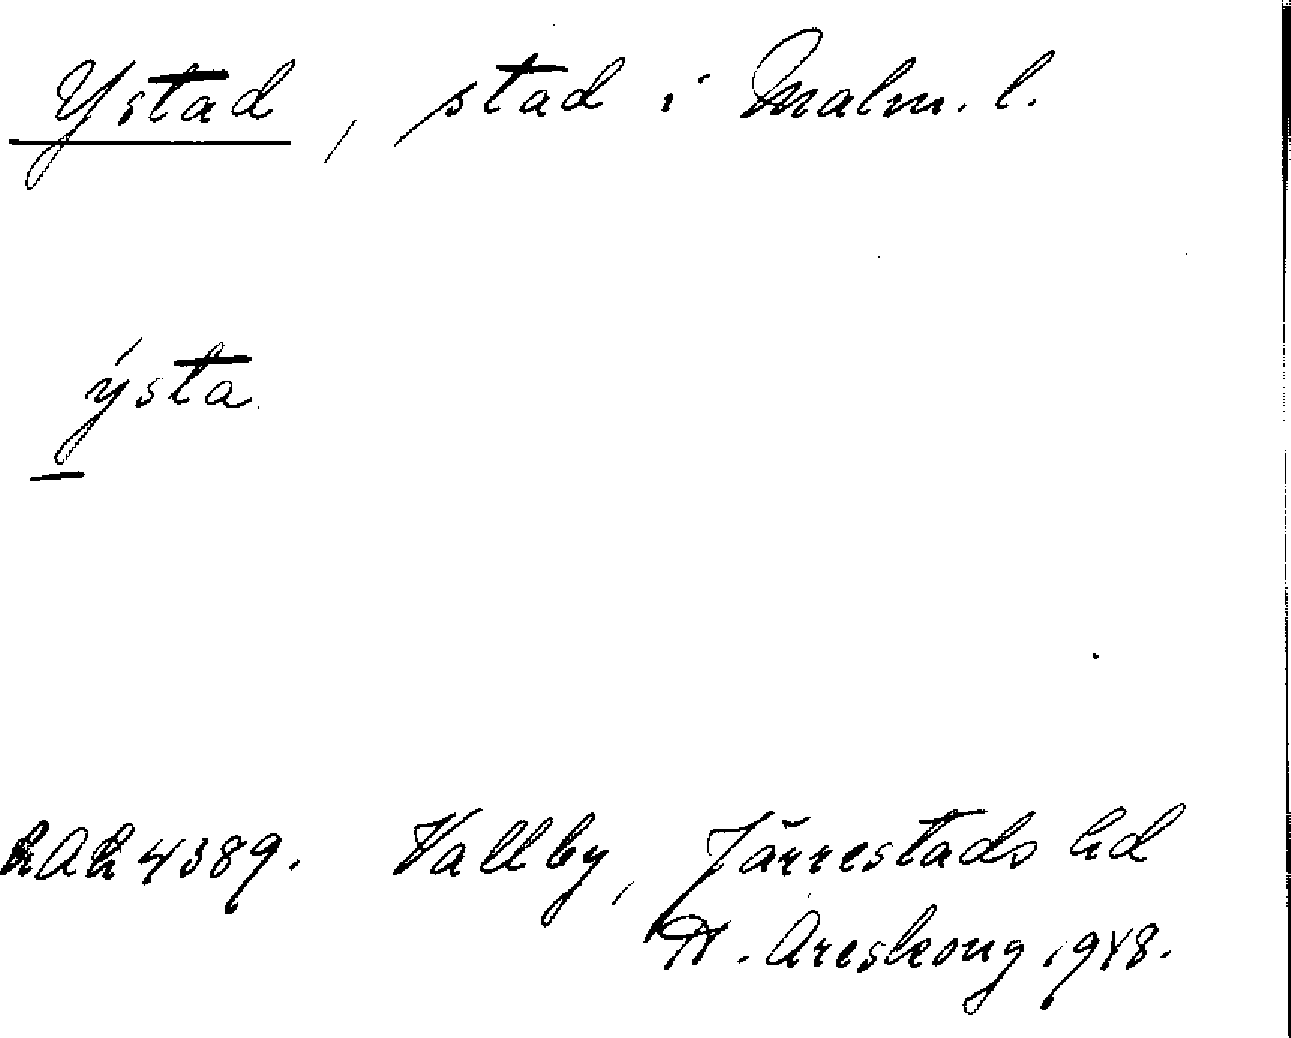 Ystad, stad i Malm. l.
ýsta
LAL 4389. Vallby, Järrestads hd
H. Areskoug, 1948.